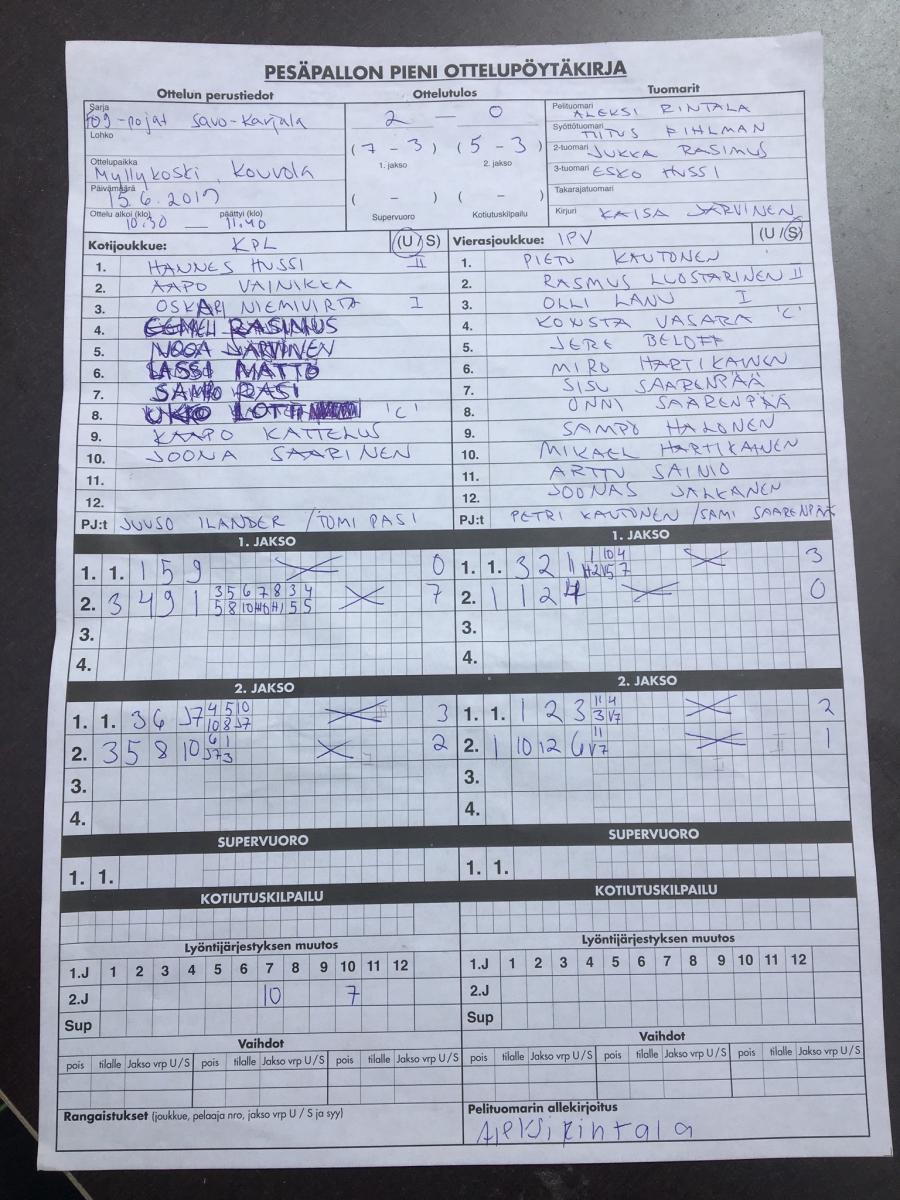 PESÄPALLON PIENI OTTELUPÖYTÄKIRJA
Ottelun perustiedot Ottelutulos Tuomarit
Sarja
F09-pojat Savo-Karjala
Lohko
Ottelupaikka
Myllykoski, Kouvola
Päivämäärä
15.6.2017
Ottelu alkoi (klo) päättyi (klo)
10.30 — 11.40
2 — 0
( 7 - 3 ) ( 5 - 3 )
1. jakso 2. jakso
( - ) ( - )
Supervuoro Kotiutuskilpailu
Pelituomari ALEKSI RINTALA
Syöttötuomari PIHLMAN
2-tuomari JUKKA RASIMUS
3-tuomari ESKO HUSSI
Takarajatuomari
Kirjuri KAISA JÄRVINEN
Kotijoukkue: KPL (U / S)
1. HANNES HUSSI II
2. AAPO VAINIKKA
3. OSKARI NIEMIVIRTA I
4. EEMELI RASIMUS
5. NOOA JÄRVINEN
6. LASSI MATTO
7. SAMPO PASI
8. UKKO 'C'
9. KAAPO KATTELUS
10. JOONA SAARINEN
11.
12.
PJ:t JUUSO ILANDER / TOMI PASI
Vierasjoukkue: IPV (U / S)
1. PIETU KAUTONEN
2. RASMUS LUOSTARINEN II
3. OLLI LANU I
4. KONSTA VASARA 'C'
5. JERE BELOFF
6. MIRO HARTIKAINEN
7. SISU SAARENPÄÄ
8. ONNI SAARENPÄÄ
9. SAMPO HALONEN
10. MIKAEL HARTIKAINEN
11. ARTTU SAINIO
12. JOONAS JALKANEN
PJ:t PETRI KAUTONEN / SAMI SAARENPÄÄ
1. JAKSO 1. JAKSO
1. 1. 1 5 9 0
2. 3 4 9 1 3 5 6 7 8 3 4 7
3.
4.
1. 1. 3 2 1 3
2. 1 1 2 4 0
3.
4.
2. JAKSO 2. JAKSO
1. 1. 3 6 J7 4 5 10 3
10 8 J7
2. 3 5 8 10 J7 6 1 2
3
3.
4.
1. 1. 1 2 3 11 4 2
3 V7
2. 1 10 12 6 11 1
V7
3.
4.
SUPERVUORO SUPERVUORO
1. 1. 1. 1.
KOTIUTUSKILPAILU KOTIUTUSKILPAILU
Lyöntijärjestyksen muutos Lyöntijärjestyksen muutos
1.J 1 2 3 4 5 6 7 8 9 10 11 12 1.J 1 2 3 4 5 6 7 8 9 10 11 12
2.J 10 7 2.J
Sup Sup
Vaihdot Vaihdot
pois tilalle Jakso vrp U / S pois tilalle Jakso vrp U / S pois tilalle Jakso vrp U / S pois tilalle Jakso vrp U / S pois tilalle Jakso vrp U / S pois tilalle Jakso vrp U / S
Rangaistukset (joukkue, pelaaja nro, jakso vrp U / S ja syy) Pelituomarin allekirjoitus
Aleksi rintala